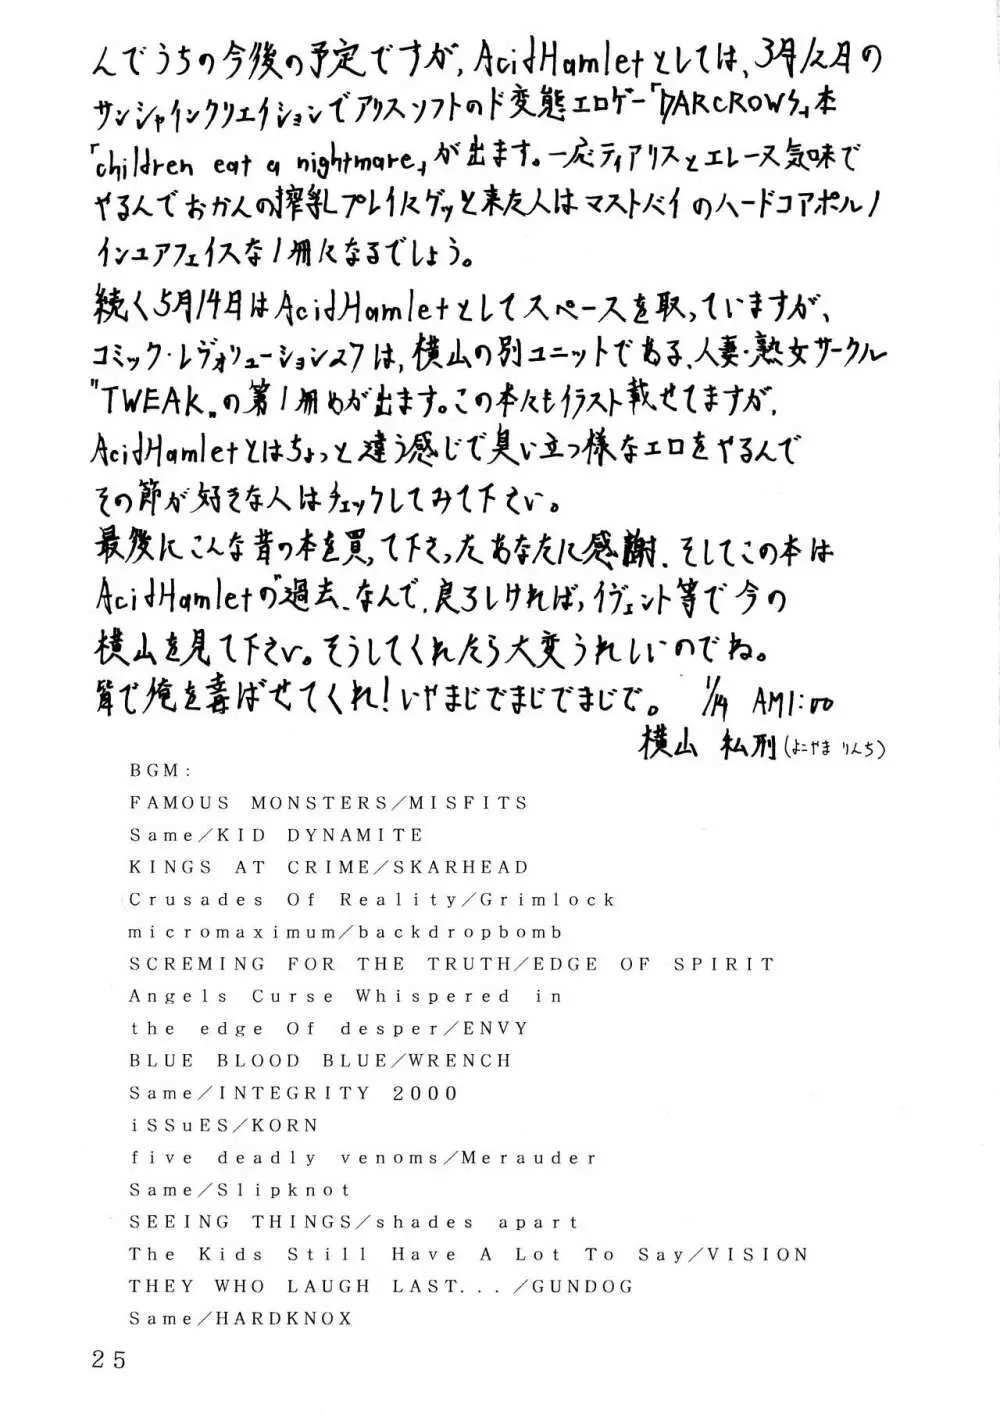 んでうちの今後の予定ですが、AcidHamletとしては、3月12日の
サンシャインクリエイションでアリスソフトのド変態エロゲー「DARCROWS」本
「children eat a nightmare」が出ます。一応ティアリスとエレーヌ気味で
やるんでおかんの搾乳プレイにグッと来た人はマストバイのハードコアポルノ
インユアフェイスな1冊になるでしょう。
続く5月14日はAcidHamletとしてスペースを取っていますが、
コミック・レヴォリューション27は、横山の別ユニットである、人妻・熟女サークル
"TWEAK"の第1冊めが出ます。この本々もイラスト載せてますが、
AcidHamletとはちょっと違う感じで臭い立つ様なエロをやるんで
その節が好きな人はチェックしてみて下さい。
最後にこんな昔の本を買って下さったあなたに感謝、そしてこの本は
AcidHamletの"過去"、なんで、良ろしければ、イヴェント等で今の
横山を見て下さい。そうしてくれたら大変うれしいのでね。
皆で俺を喜ばせてくれ!いやまじでまじでまじで。 1/14 AM1:00
横山 私刑(よこやま りんち)
BGM:
FAMOUS MONSTERS/MISFITS
Same/KID DYNAMITE
KINGS AT CRIME/SKARHEAD
Crusades Of Reality/Grimlock
micromaximum/backdropbomb
SCREMING FOR THE TRUTH/EDGE OF SPIRIT
Angels Curse Whispered in
the edge Of desper/ENVY
BLUE BLOOD BLUE/WRENCH
Same/INTEGRITY 2000
iSSuES/KORN
five deadly venoms/Merauder
Same/Slipknot
SEEING THINGS/shades apart
The Kids Still Have A Lot To Say/VISION
THEY WHO LAUGH LAST.../GUNDOG
Same/HARDKNOX
25